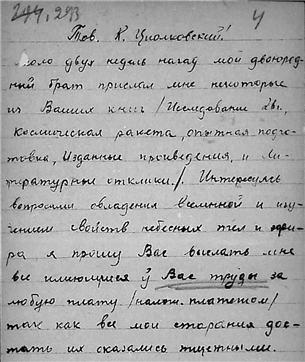 244, 293
4
Тов. К. Циолковский!
Около двух недель назад мой двоюрод-
ный брат прислал мне некоторые
из Ваших книг /Исследование
Космическая ракета, опытная подго-
товка, Изданные произведения, и Ли-
тературные отклики/. Интересуясь
вопросами овладения вселенной и изу-
чением свойств небесных тел и эфи-
ра я прошу Вас выслать мне
все имеющиеся у Вас труды за
любую плату /налож. платежом/
так как все мои старания дос-
тать их оказались тщетными.